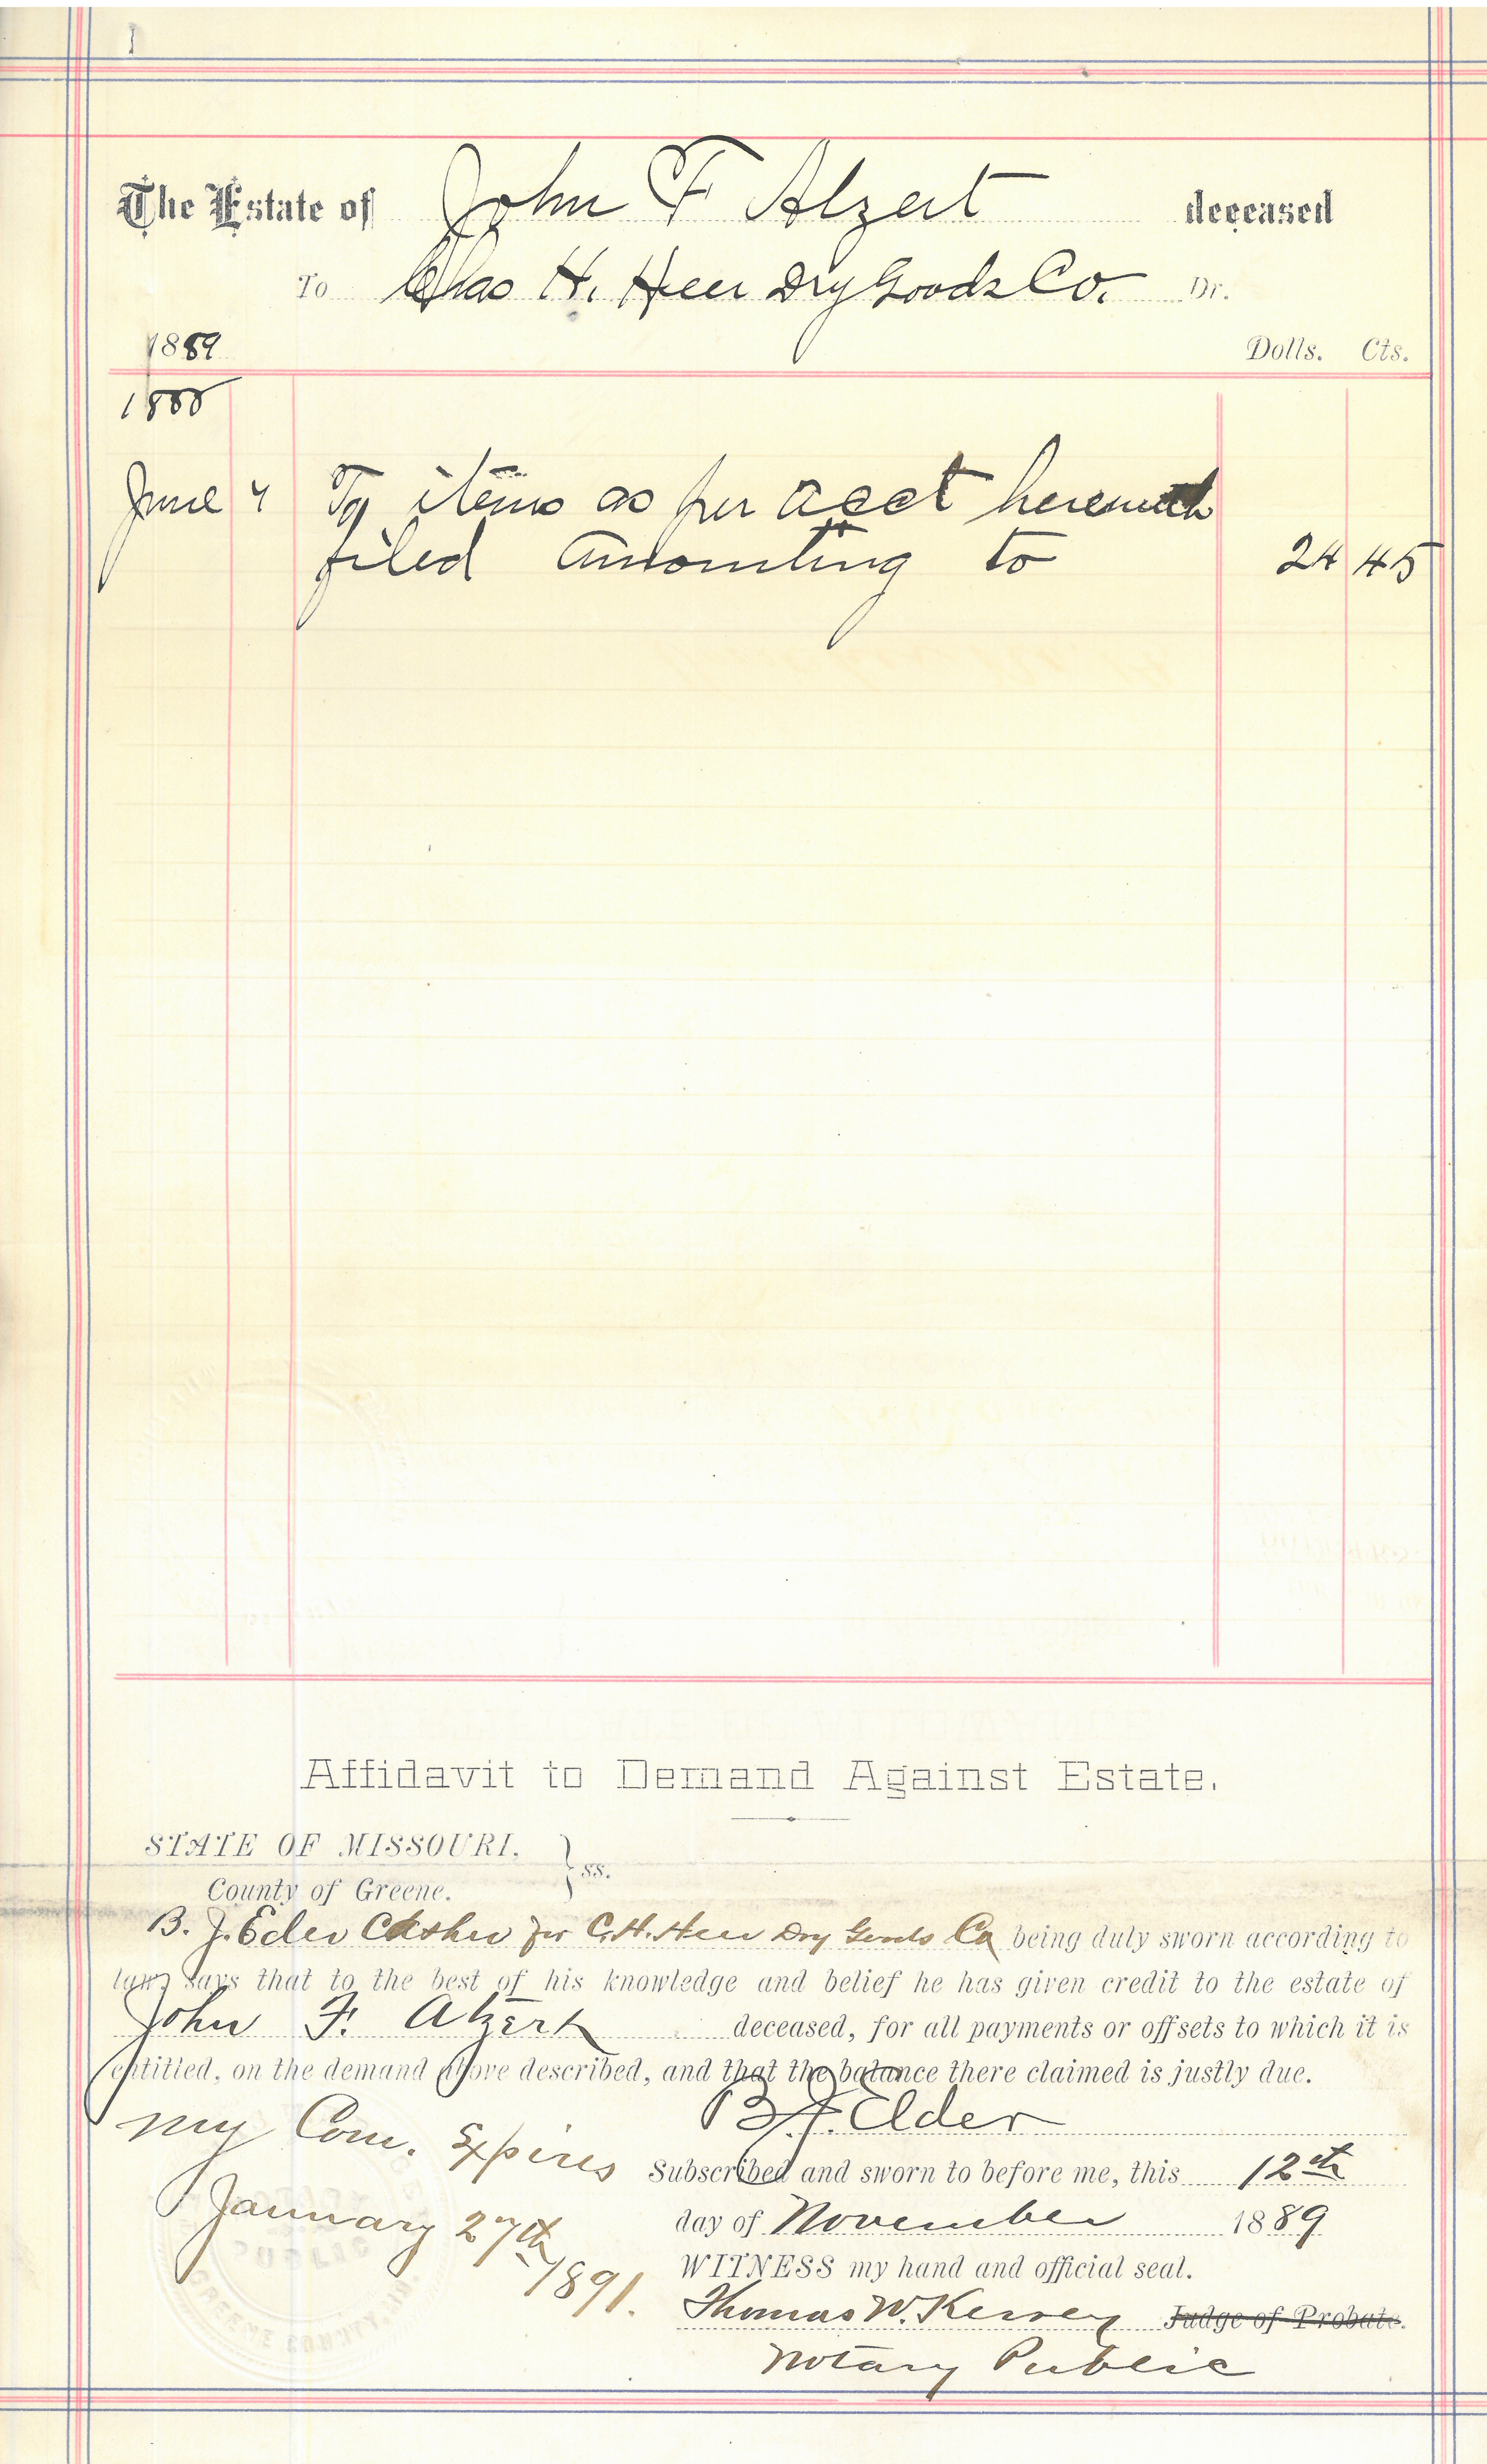 The Estate of John F Alzert deceased
To Chas H. Heer Dry Goods Co. Dr.
1889 Dolls. Cts.
1888
June 4 To items as per acct herewith
filed amounting to 24 45
Affidavit to Demand Against Estate.
STATE OF MISSOURI, } ss.
County of Greene.
B. J. Elder Cashier for C. H. Heer Dry Goods Co being duly sworn according to
law, says that to the best of his knowledge and belief he has given credit to the estate of
John F. Alzert deceased, for all payments or offsets to which it is
entitled, on the demand above described, and that the balance there claimed is justly due.
B. J. Elder
My Com. Expires
January 27th
1891.
Subscribed and sworn to before me, this 12th
day of November 1889
WITNESS my hand and official seal.
Thomas W. Kersey Judge of Probate.
Notary Public